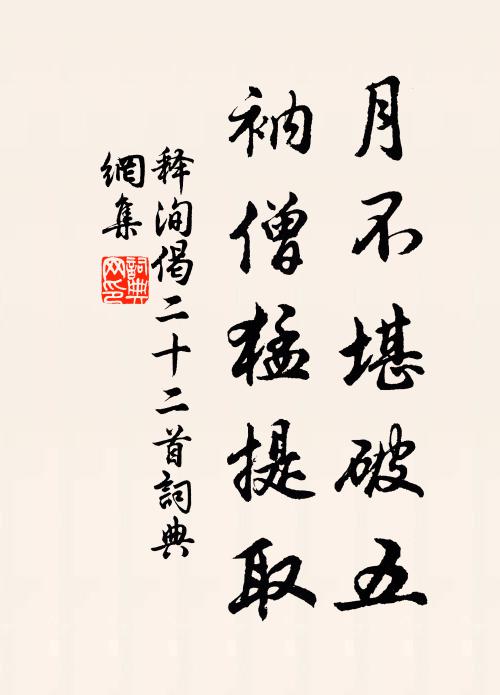 月不堪破五
衲僧猛提取
释洵偈二十二首詞典
網集
詞典
网印